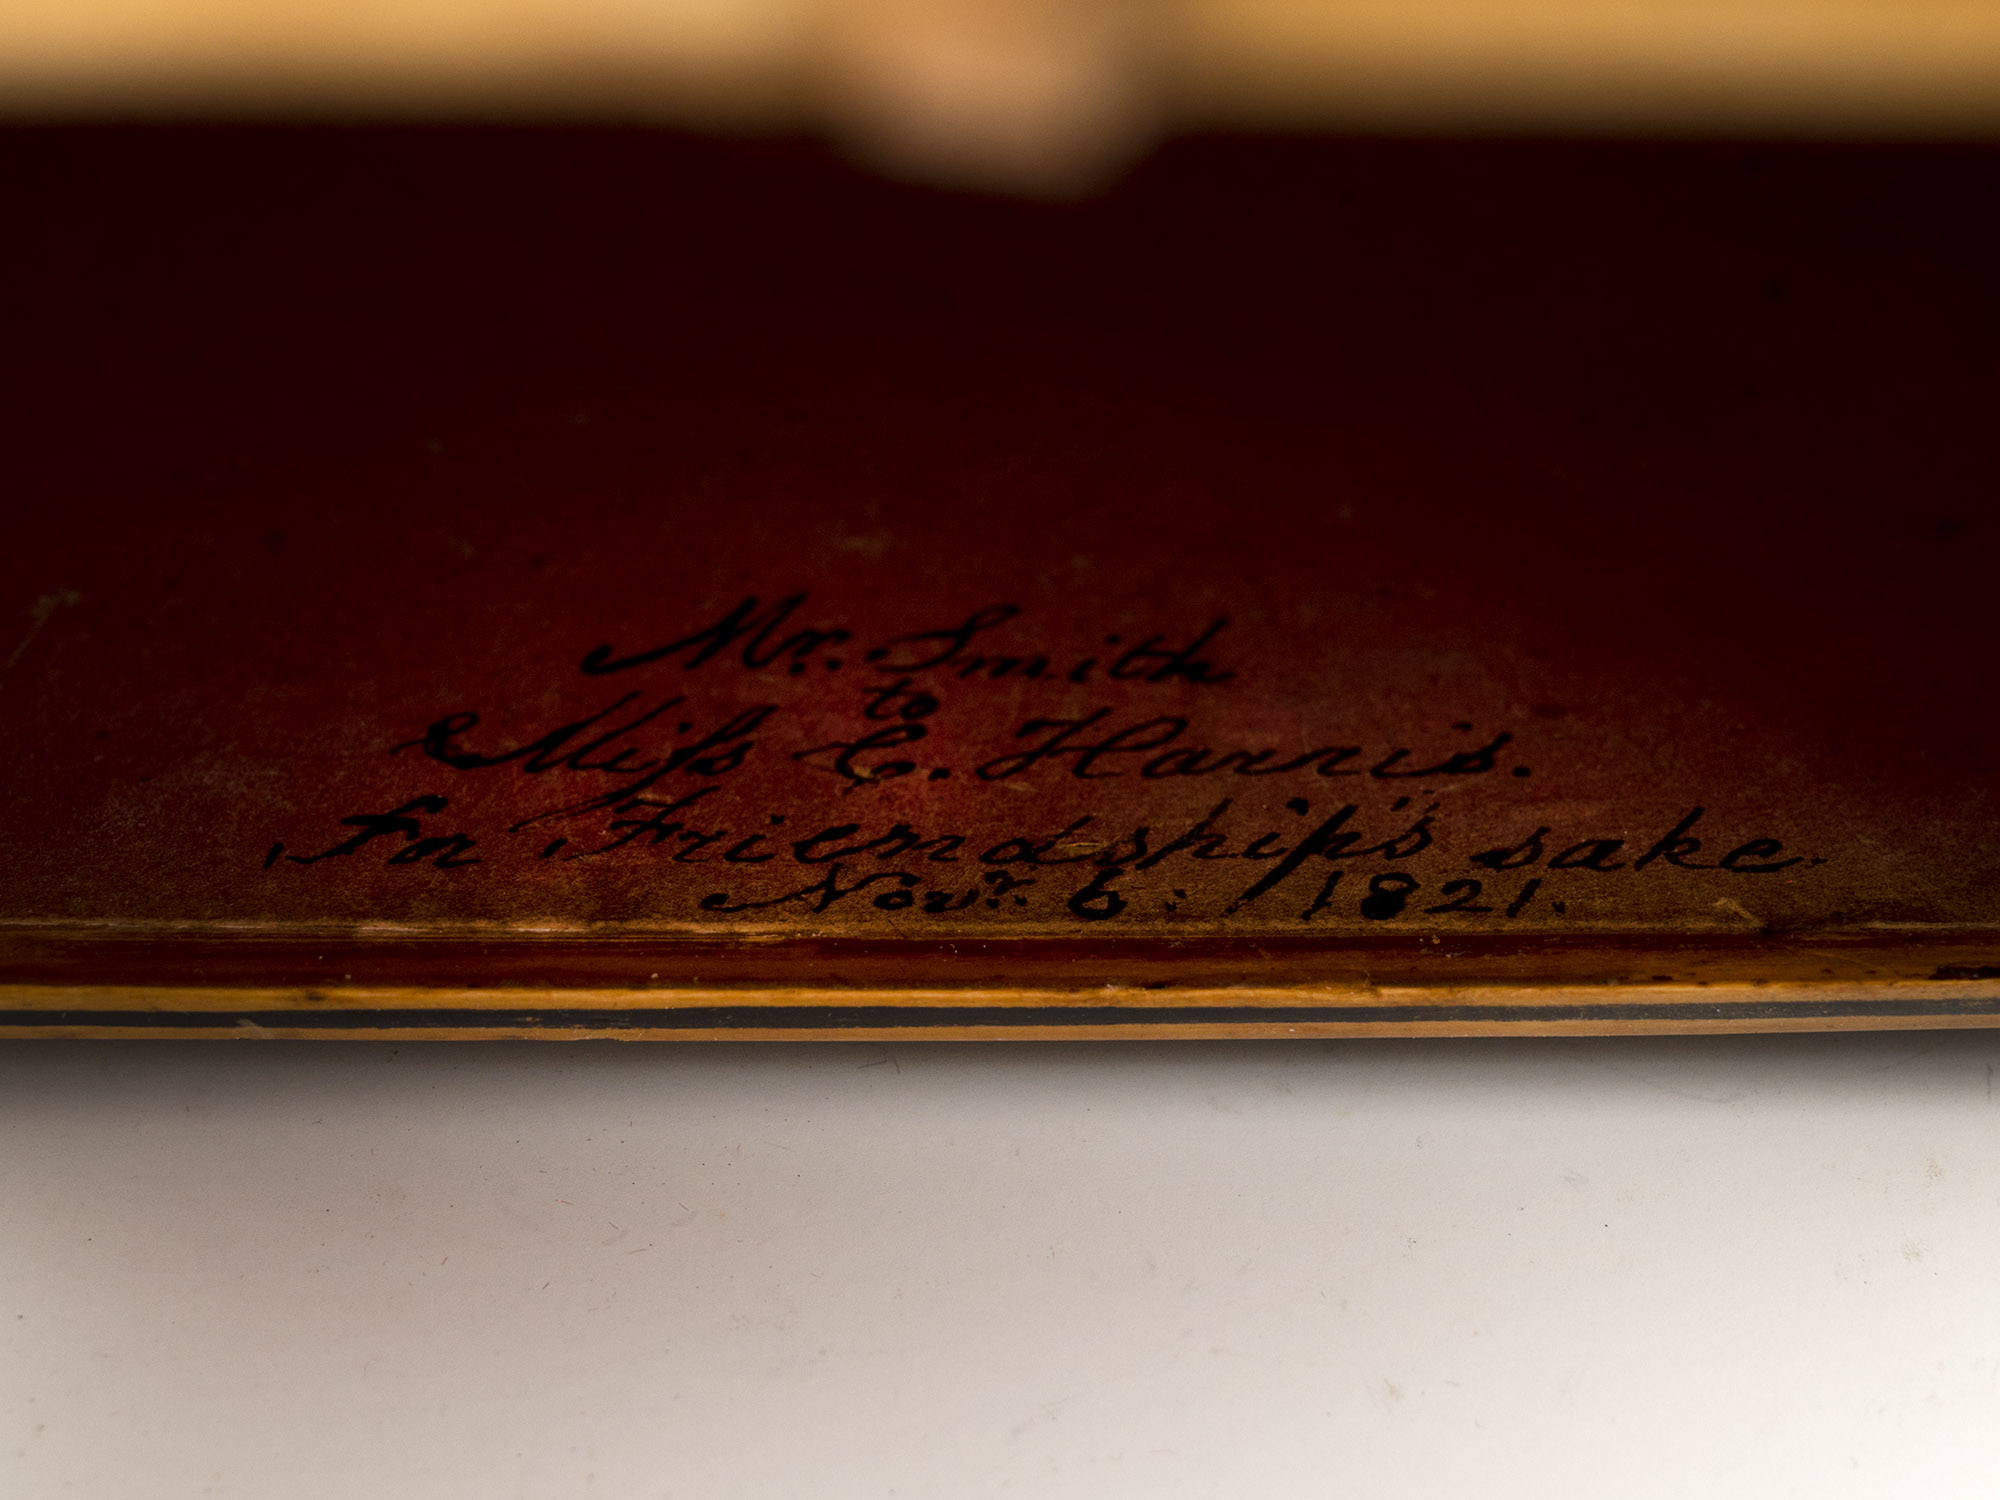 Mr. Smith
to
Miſs C. Harris.
For Friendship's sake.
Novr. 6. 1821.